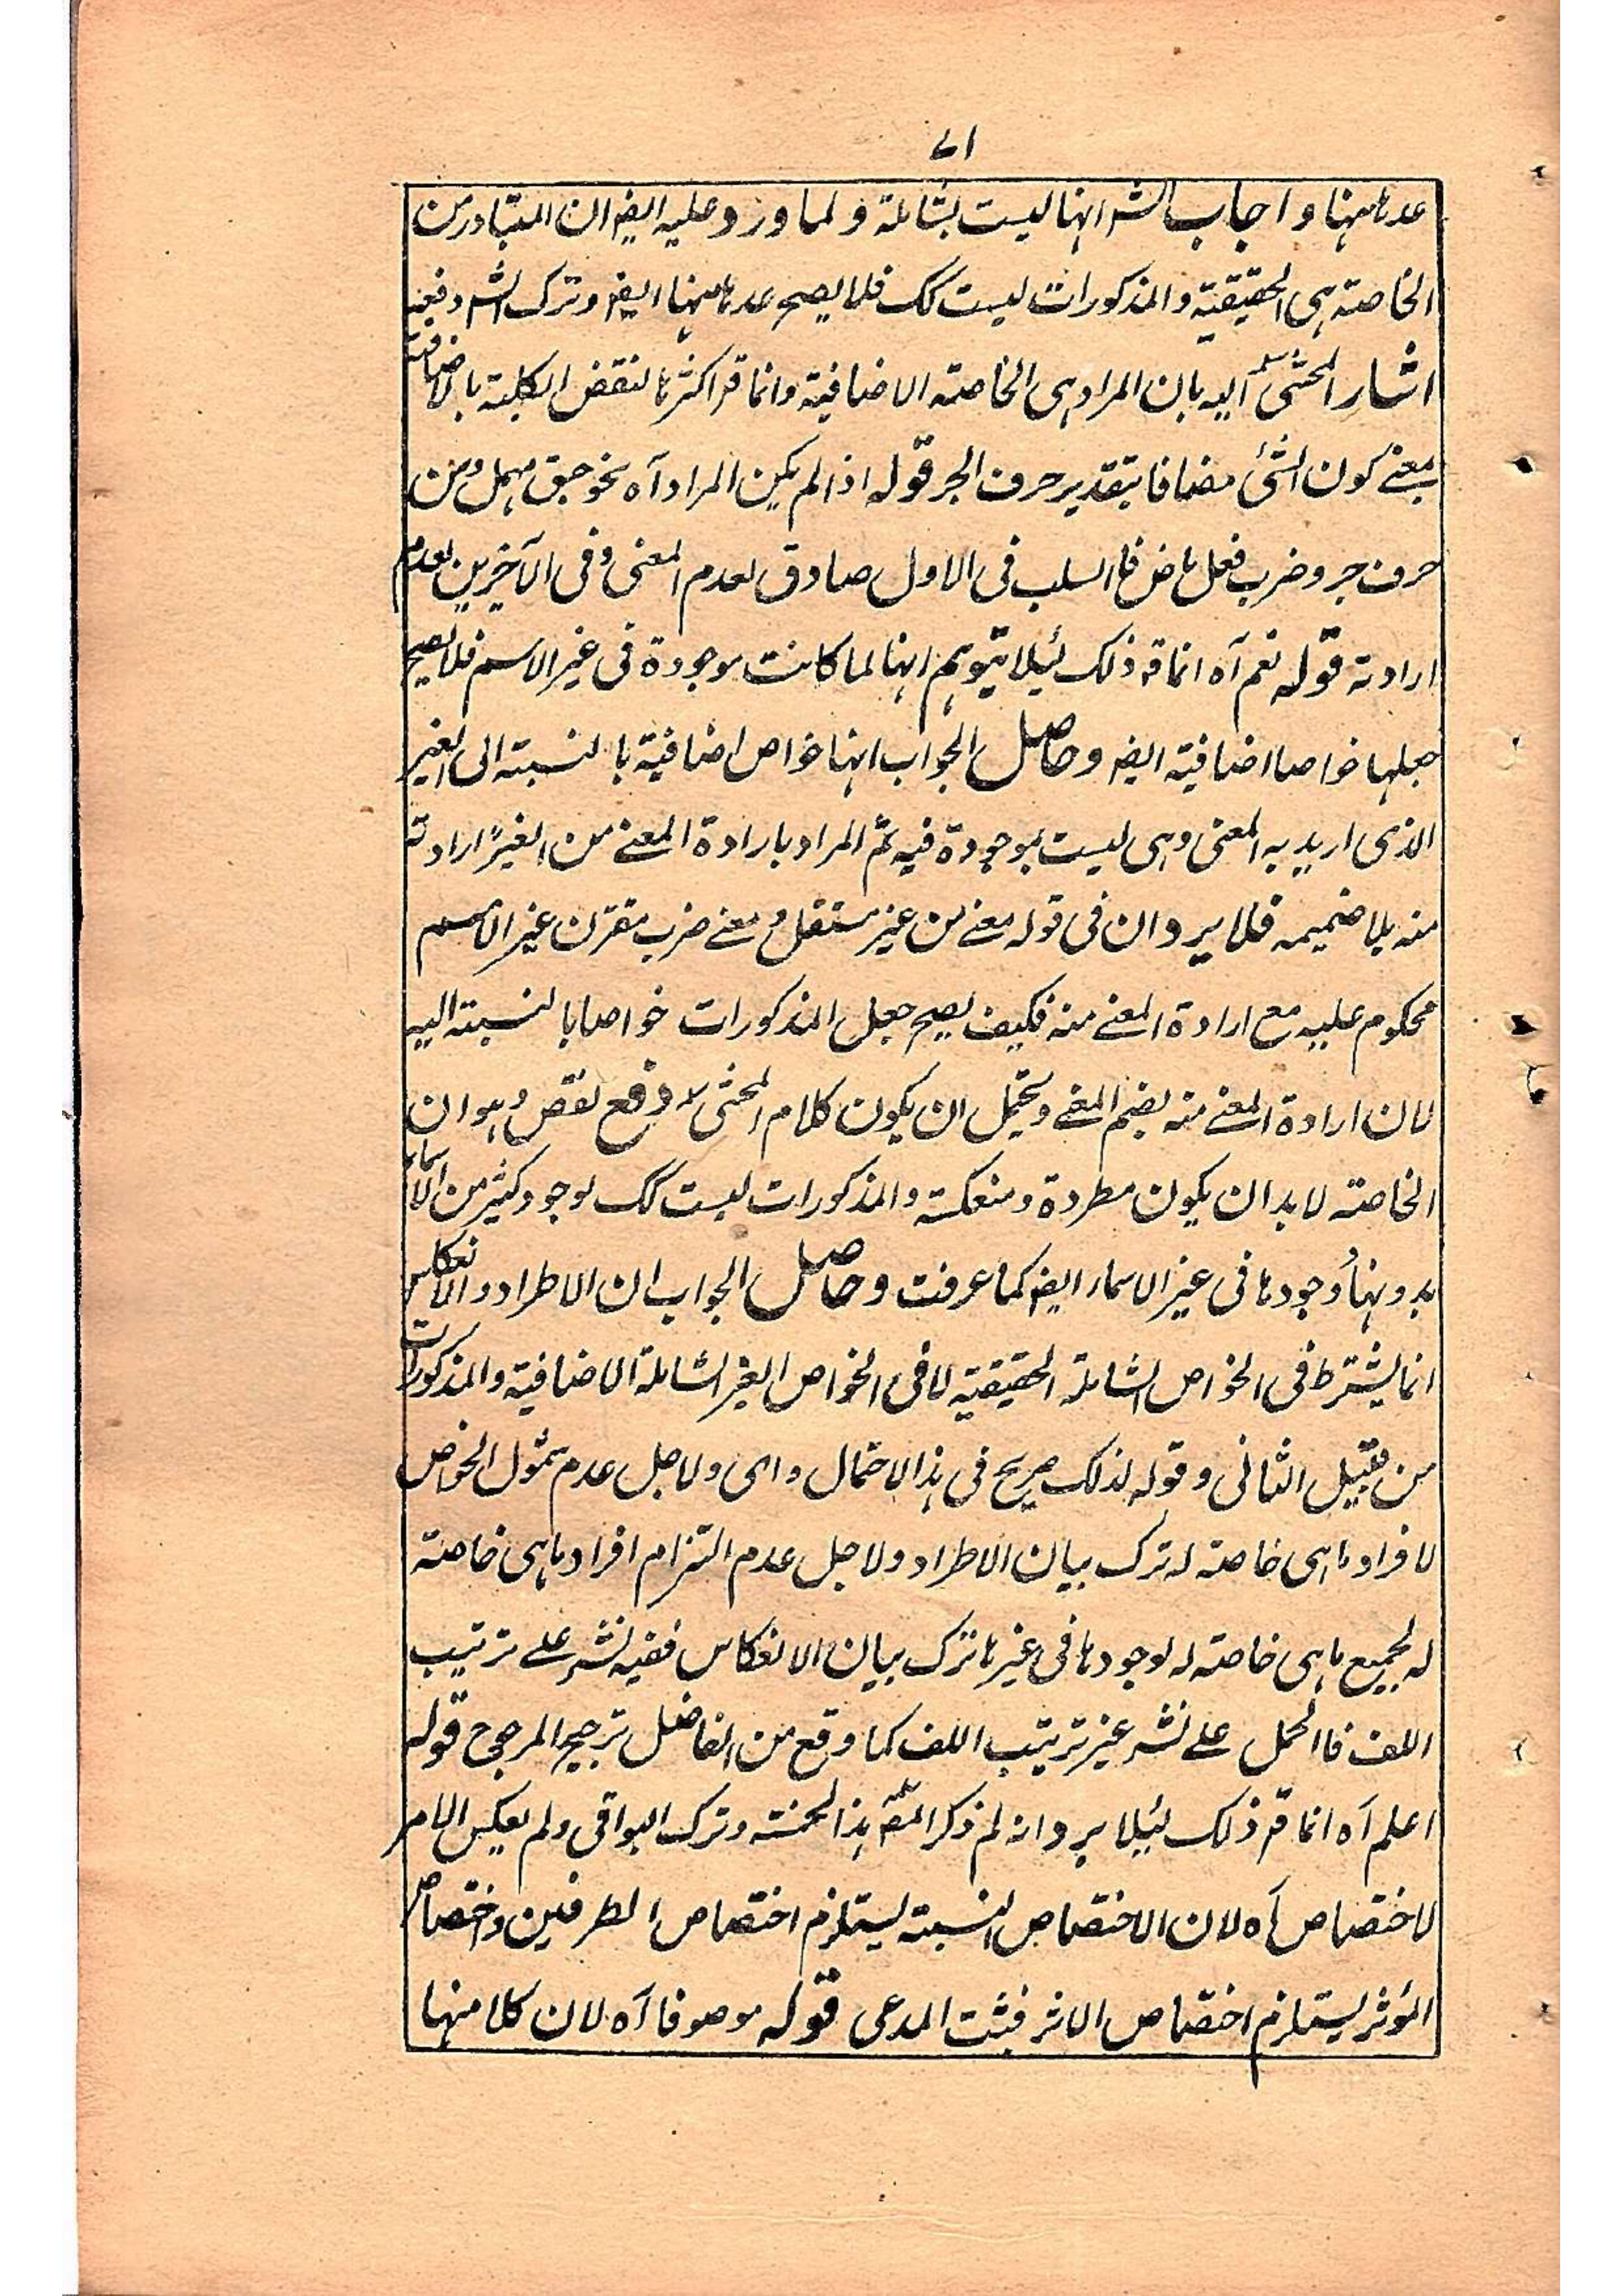 ٧١
عدها منها واجاب الش انها ليست بشاملة ولما ورد عليه ايضا ان المتبادر من
الخاصة هى الحقيقية والمذكورات ليست كك فلا يصح عدها منها ايضا وترك الش دفعه
اشار المحشى اليه بان المراد هى الخاصة الاضافية وانما قر اكثرها لنقض الكلية بالاضافة
بمعنے كون الشئ مضافا بتقدير حرف الجر قوله اذا لم يكن المراد آه نحو جسق مهمل ومن
حرف جر وضرب فعل ماض فا السلب فى الاول صادق لعدم المعنى وفى الآخرين لعدم
ارادته قوله نعم آه انما قر ذلك لئلا يتوهم انها لما كانت موجودة فى غير الاسم فلا يصح
جعلها خواصا اضافية ايضا وحاصل الجواب انها خواص اضافية بالنسبة الى الغير
الذى اريد به المعنى وهى ليست بموجودة فيه ثم المراد بارادة المعنے من الغير ارادته
منه بلا ضميمه فلا يرد ان فى قوله معنے من غير مستقل ومعنے ضرب مقترن غير الاسم
محكوم عليه مع ارادة المعنے منه فكيف يصح جعل المذكورات خواصا بالنسبة اليه
لان ارادة المعنے منه بضم المعنے ويحتمل ان يكون كلام المحشى دفع نقض وهو ان
الخاصة لا بد ان يكون مطردة ومنعكسة والمذكورات ليست كك لوجود كثير من الاسماء
بدونها ووجودها فى غير الاسماء ايضا كما عرفت وحاصل الجواب ان الاطراد والانعكاس
انما يشترط فى الخواص الشاملة الحقيقية لا فى الخواص الغير الشاملة الاضافية والمذكورات
من قبيل الثانى وقوله لذلك صريح فى هذا الاحتمال واى ولاجل عدم شمول الخواص
لافراد ما هى خاصة له ترك بيان الاطراد ولاجل عدم التزام افراد ما هى خاصة
له لجميع ما هى خاصة له لوجودها فى غيرها ترك بيان الانعكاس ففيه نشر علے ترتيب
اللف فا الحمل علے نشر غير ترتيب اللف كما وقع من الفاضل ترجيح المرجوح قوله
اعلم آه انما قر ذلك لئلا يرد انه لم ذكر المص هذا الخمسة وترك البواقى ولم يعكس الامر
لاختصاص آه لان الاختصاص النسبة يستلزم اختصاص الطرفين واختصاص
المؤثر يستلزم اختصاص الاثر فثبت المدعى قوله موصوفا آه لان كلا منها